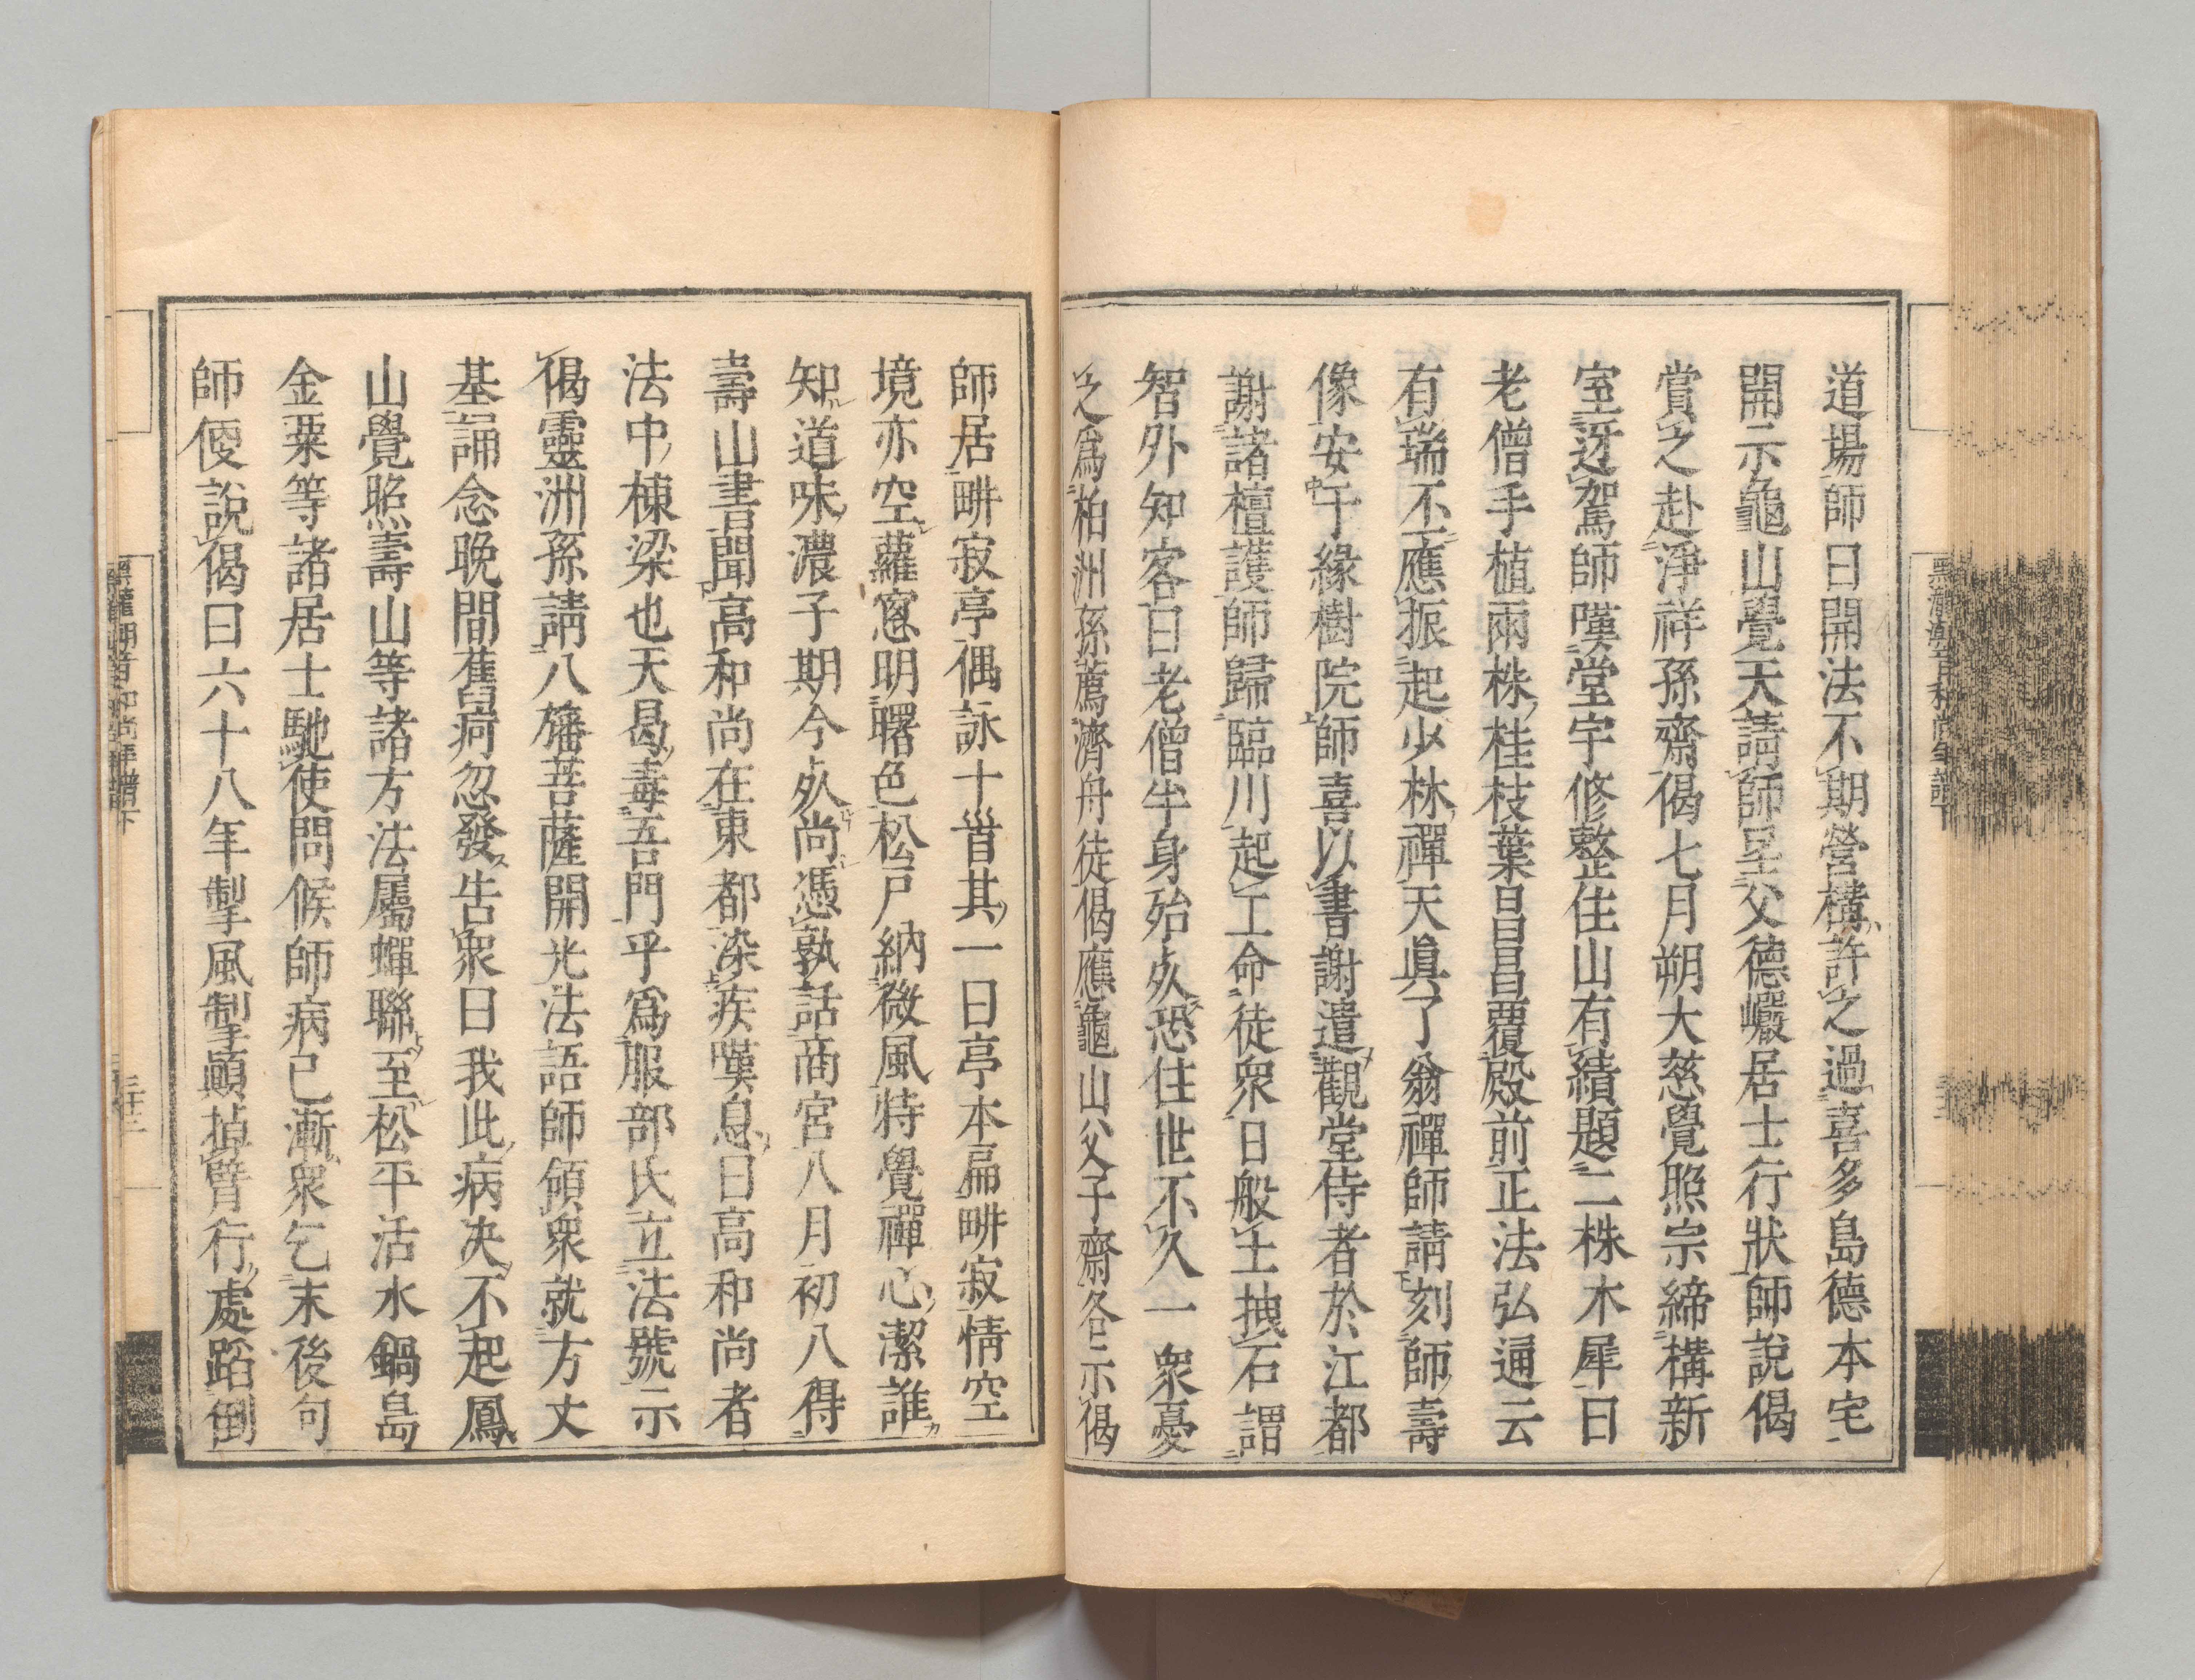 道場師曰開法不期營構許之過喜多島德本宅
開示龜山覺天請師呈父德巗居士行狀師説偈
賞之赴淨祥孫齋偈七月朔大慈覺照宗締構新
室迓駕師嘆堂宇修整住山有績題二株木犀曰
老僧手植兩株桂枝葉昌昌覆殿前正法弘通云
有瑞不應振起少林禪天眞了翁禪師請刻師壽
像安于緣樹院師喜以書謝遣觀堂侍者於江都
謝諸檀護師歸臨川起工命徒衆日般土拽石謂
智外知客曰老僧半身殆处恐住世不久一衆憂
之爲柏洲孫薦濟舟徒偈應龜山父子齋各示偈
師居畊寂亭偶詠十首其一曰亭本扁畊寂情空
境亦空蘿窓明曙色松戸納微風特覺禪心潔誰
知道味濃子期今处尚憑孰話商宮八月初八得
壽山書聞高和尚在東都染疾嘆息曰高和尚者
法中棟梁也天曷毒吾門乎爲服部氏立法號示
偈靈洲孫請八旛菩薩開光法語師領衆就方丈
基誦念晚間舊疴忽發告衆曰我此病決不起鳳
山覺照壽山等諸方法屬蟬聯至松平活水鍋島
金粟等諸居士馳使問候師病已漸衆乞末後句
師便説偈曰六十八年掣風掣顚掉臂行處蹈倒